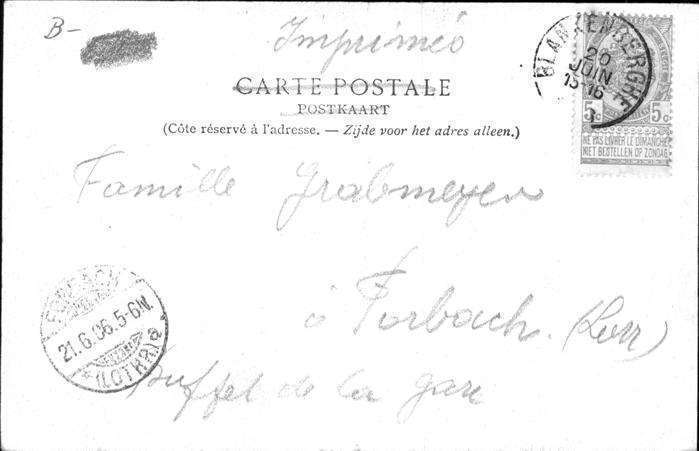 B-
Imprimés
CARTE POSTALE
POSTKAART
(Côte réservé à l'adresse. — Zijde voor het adres alleen.)
BLANKENBERGHE
20
JUIN
15-16
5c 5c
NE PAS LIVRER LE DIMANCHE
NIET BESTELLEN OP ZONDAG
Famille Grabmeyer
à Forbach. (Lorr)
Buffet de la gare
FORBACH
21.6.06.5-6N.
*(LOTHR)a